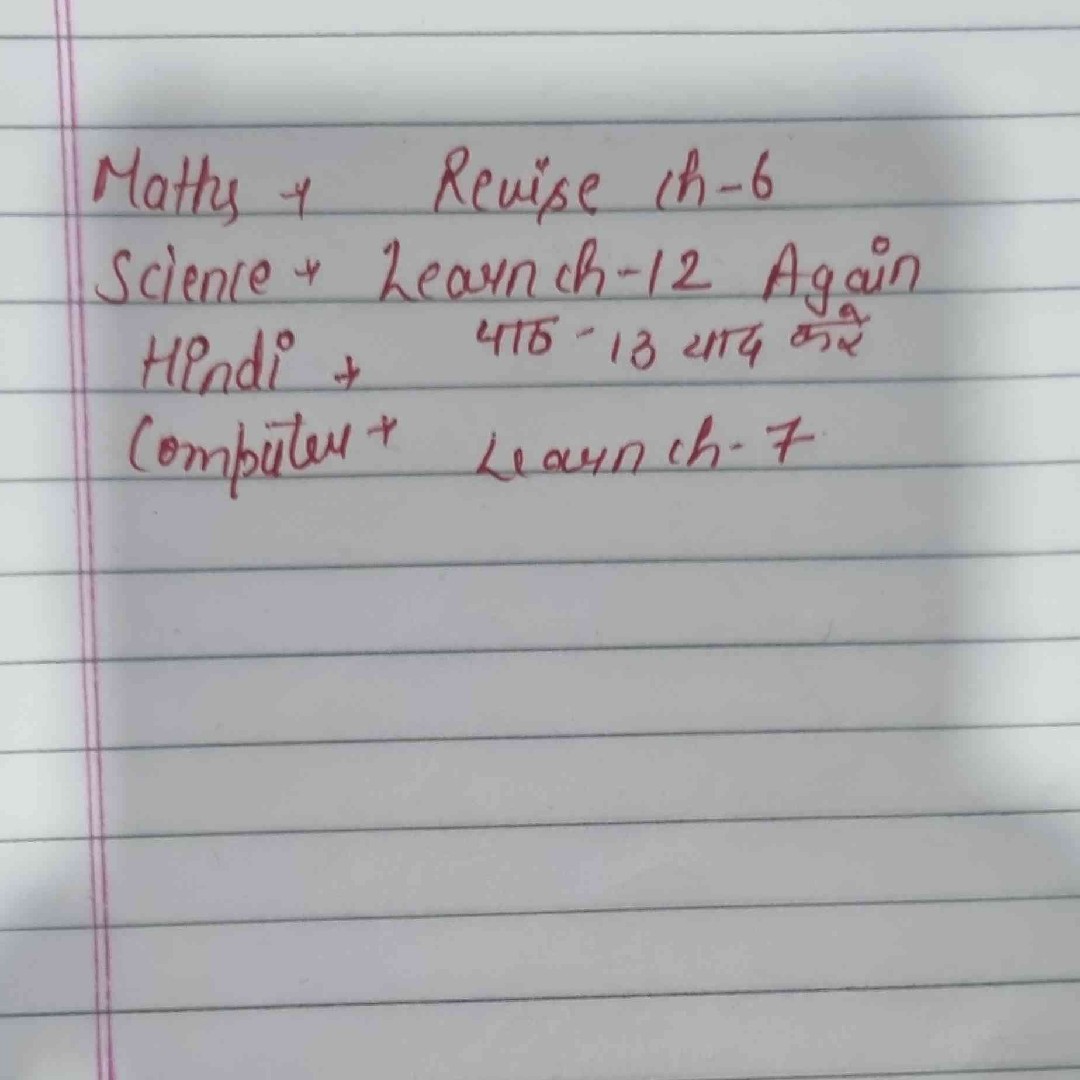 Maths → Revise ch-6
Science → Learn ch-12 Again
Hindi → पाठ - 13 याद करे
Computer → Learn ch-7